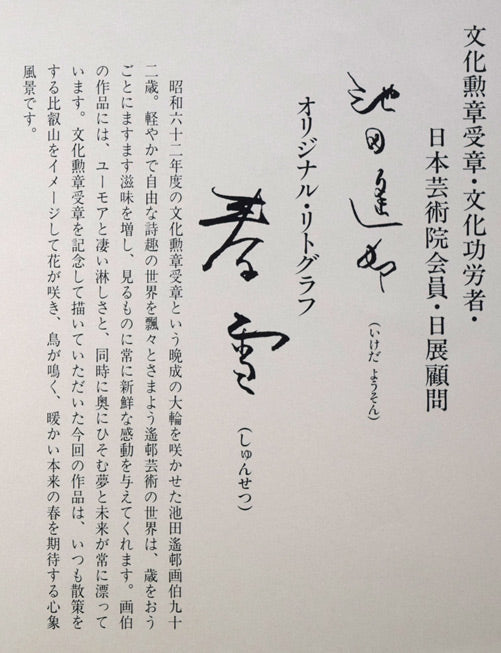 文化勲章受章・文化功労者・
日本芸術院会員・日展顧問
池田遙邨
(いけだ ようそん)
オリジナル・リトグラフ
春雪
(しゅんせつ)
昭和六十二年度の文化勲章受章という晩成の大輪を咲かせた池田遙邨画伯九十
二歳。軽やかで自由な詩趣の世界を飄々とさまよう遙邨芸術の世界は、歳をおう
ごとにますます滋味を増し、見るものに常に新鮮な感動を与えてくれます。画伯
の作品には、ユーモアと凄い淋しさと、同時に奥にひそむ夢と未来が常に漂って
います。文化勲章受章を記念して描いていただいた今回の作品は、いつも散策を
する比叡山をイメージして花が咲き、鳥が鳴く、暖かい本来の春を期待する心象
風景です。